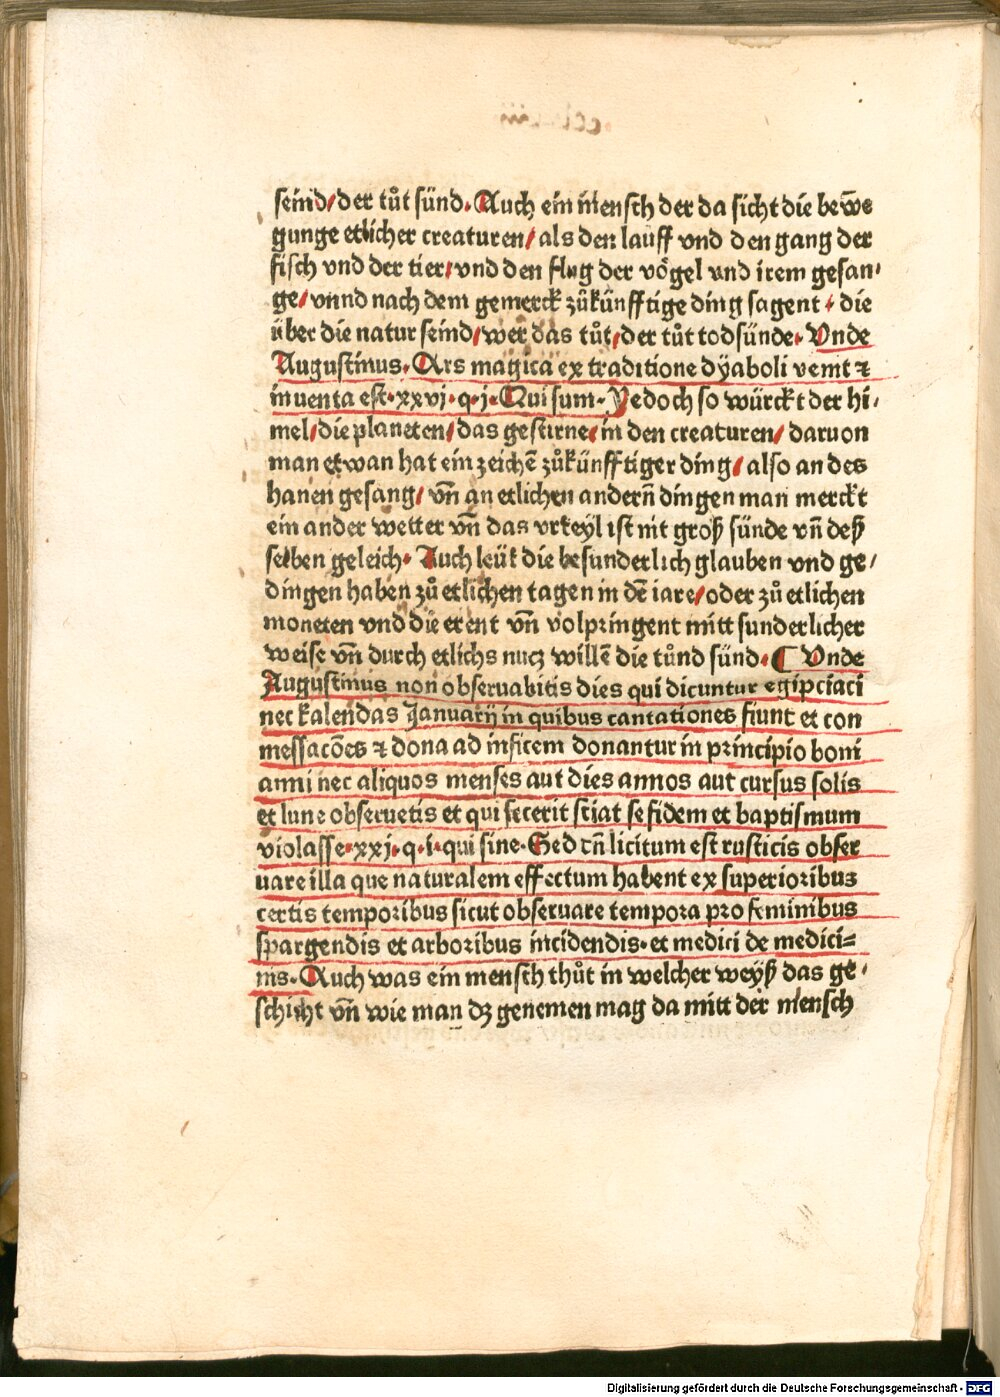 seind/ der tůt sünd. Auch ein mensch der da sicht die bewe̅
gunge etlicher creaturen/ als den lauff vnd den gang der
fisch vnd der tier/ vnd den flug der vögel vnd irem gesan/
ge/ vnnd nach dem gemerck zůkünfftige ding sagent/ die
über die natur seind/ wer das tůt/ der tůt todsünde. Vnde
Augustinus. Ars magica ex traditione dyaboli venit ⁊
inuenta est. xxvj. q. j. Qui sum. Yedoch so würckt der hi/
mel/ die planeten/ das gestirne/ in den creaturen/ daruon
man etwan hat ein zeiche̅ zůkünfftiger ding/ also an des
hanen gesang/ vn̅ an etlichen andern̅ dingen man merckt
ein ander wetter vn̅ das vrteyl ist nit groß sünde vn̅ deß
selben geleich. Auch leüt die besunderlich glauben vnd ge/
dingen haben zů etlichen tagen in de̅ iare/ oder zů etlichen
moneten vnd die erent vn̅ volpringent mitt sunderlicher
weise vn̅ durch etlichs nucz wille̅ die tůnd sünd. ¶ Vnde
Augustinus non obseruabitis dies qui dicuntur egipciaci
nec kalendas Januarij in quibus cantationes fiunt et con
messaco̅es ⁊ dona ad inficem donantur in principio boni
anni nec aliquos menses aut dies annos aut cursus solis
et lune obseruetis et qui fecerit sciat se fidem et baptismum
violasse. xxj. q. i. qui sine. Sed tn̅ licitum est rusticis obser
uare illa que naturalem effectum habent ex superioribus
certis temporibus sicut obseruare tempora pro feminibus
spargendis et arboribus incidendis. et medici de medici=
nis. Auch was ein mensch thůt in welcher weyß das ge/
schicht vn̅ wie man dz genemen mag da mitt der mensch
Digitalisierung gefördert durch die Deutsche Forschungsgemeinschaft - DFG